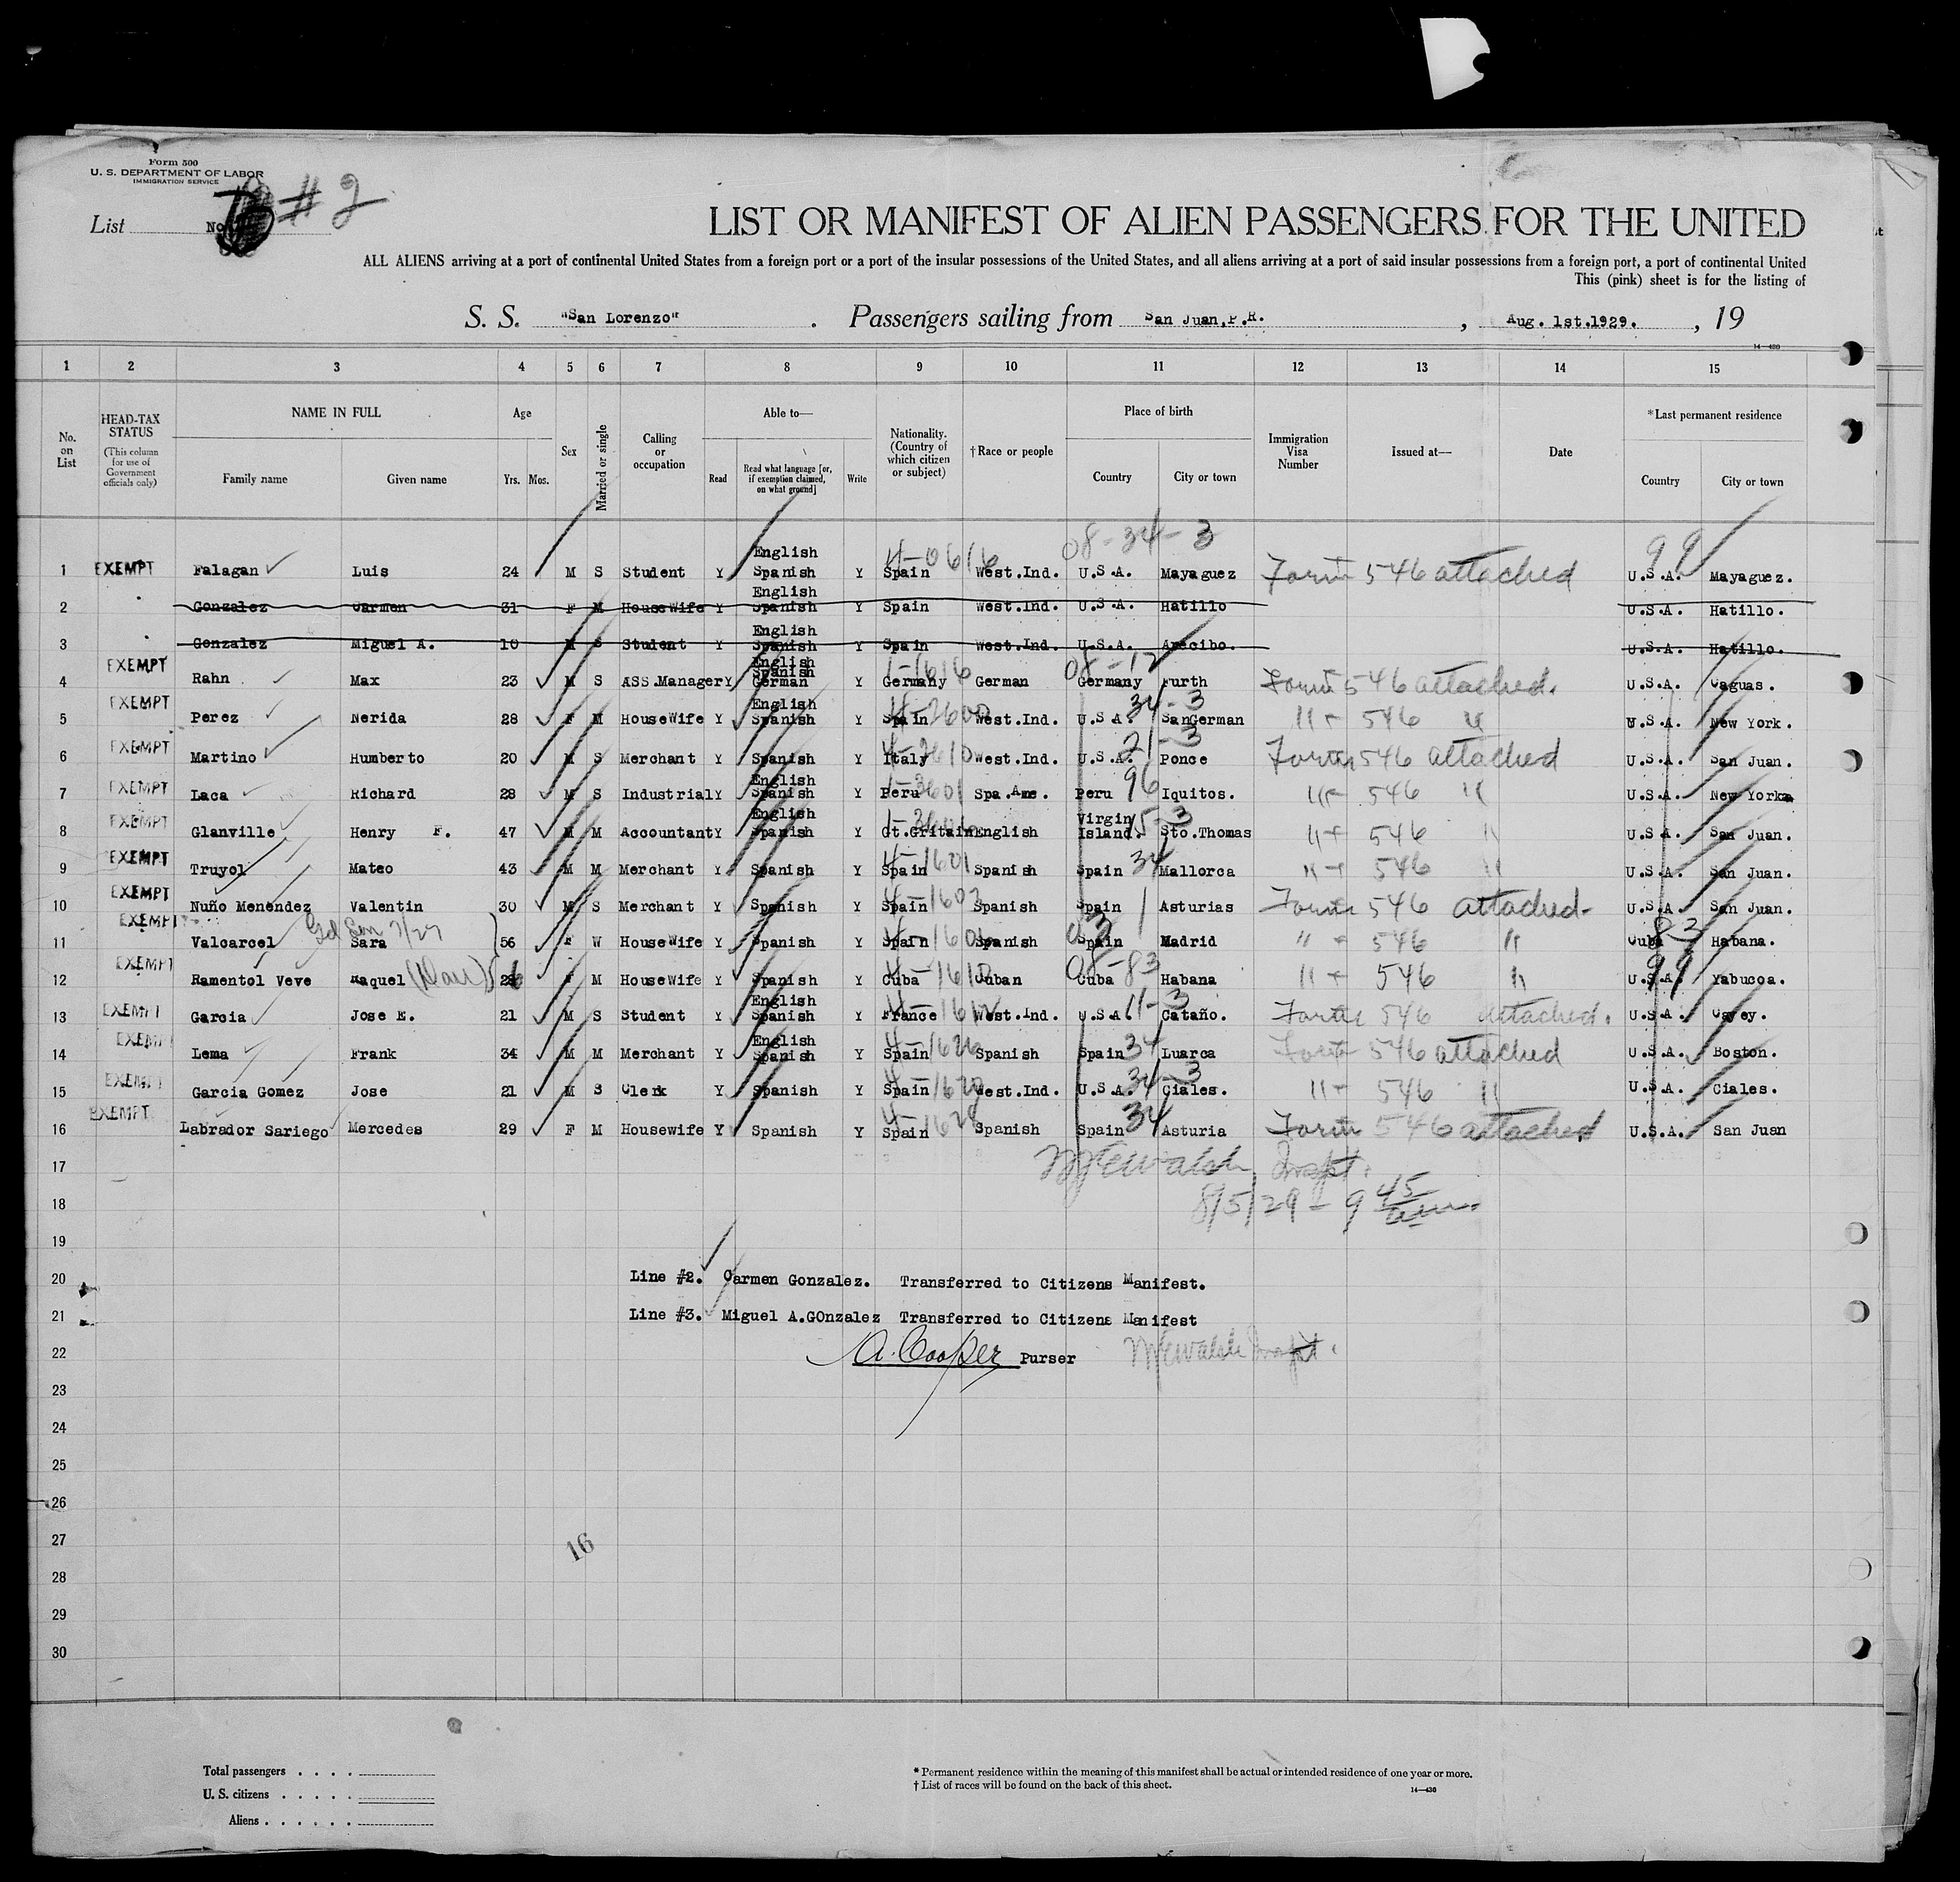 Form 500
U. S. DEPARTMENT OF LABOR
IMMIGRATION SERVICE
List No. #2
LIST OR MANIFEST OF ALIEN PASSENGERS FOR THE UNITED
ALL ALIENS arriving at a port of continental United States from a foreign port or a part of the insular possessions of the United States, and all aliens arriving at a port of said insular possessions from a foreign port, a port of continental United
This (pink) sheet is for the listing of
S. S. "San Lorenzo" . Passengers sailing from San Juan,P.R. , Aug. 1st.1929. , 19
14—430
1 2 3 4 5 6 7 8 9 10 11 12 13 14 15
No. on List
HEAD-TAX STATUS
(This column for use of Government officials only)
NAME IN FULL
Family name Given name
Age
Yrs. Mos.
Sex
Married or single
Calling or occupation
Able to—
Read
Read what language [or, if exemption claimed, on what ground]
Write
Nationality. (Country of which citizen or subject)
†Race or people
Place of birth
Country City or town
Immigration Visa Number
Issued at—
Date
*Last permanent residence
Country City or town
08-34-3 99
1 EXEMPT Falagan Luis 24 M S Student Y English Spanish Y Spain West.Ind. U.S.A. Mayaguez Form 546 attached U.S.A. Mayaguez.
2 Gonzalez Carmen 31 F M HouseWife Y English Spanish Y Spain West.Ind. U.S.A. Hatillo U.S.A. Hatillo.
3 Gonzalez Miguel A. 10 M S Student Y English Spanish Y Spain West.Ind. U.S.A. Arecibo. U.S.A. Hatillo.
4 EXEMPT Rahn Max 23 M S ASS.Manager Y English Spanish German Y Germany German Germany Furth Form 546 attached. U.S.A. Caguas.
5 EXEMPT Perez Nerida 28 F M HouseWife Y English Spanish Y Spain West.Ind. U.S.A. 34-3 SanGerman " - 546 " U.S.A. New York.
6 EXEMPT Martino Humberto 20 M S Merchant Y Spanish Y Italy West.Ind. U.S.A. 21-3 Ponce Form 546 attached U.S.A. San Juan.
7 EXEMPT Laca Richard 28 M S Industrial Y English Spanish Y Peru Spa.Ame. Peru 96 Iquitos. " - 546 " U.S.A. New York
8 EXEMPT Glanville Henry F. 47 M M Accountant Y English Spanish Y Gt.Gritain English Virgin Island. 15-3 Sto.Thomas " - 546 " U.S.A. San Juan.
9 EXEMPT Truyol Mateo 43 M M Merchant Y Spanish Y Spain Spanish Spain 34 Mallorca " - 546 " U.S.A. San Juan.
10 EXEMPT Nuño Menendez Valentin 30 M S Merchant Y Spanish Y Spain Spanish Spain Asturias Form 546 attached- U.S.A. San Juan.
11 EXEMPT Valcarcel Sara 56 F W HouseWife Y Spanish Y Spain Spanish Spain Madrid " - 546 " Cuba 83 Habana.
12 EXEMPT Ramentol Veve Raquel F M HouseWife Y Spanish Y Cuba Cuban Cuba 08-83 Habana " - 546 " U.S.A. 99 Yabucoa.
13 EXEMPT Garcia Jose E. 21 M S Student Y English Spanish Y France West.Ind. U.S.A. 11-3 Cataño. Form 546 attached. U.S.A. Cayey.
14 EXEMPT Lema Frank 34 M M Merchant Y English Spanish Y Spain Spanish Spain 34 Luarca Form 546 attached U.S.A. Boston.
15 EXEMPT Garcia Gomez Jose 21 M S Clerk Y Spanish Y Spain West.Ind. U.S.A. 34-3 Ciales. " - 546 " U.S.A. Ciales.
16 EXEMPT Labrador Sariego Mercedes 29 F M Housewife Y Spanish Y Spain Spanish Spain 34 Asturia Form 546 attached U.S.A. San Juan
17
18 8/5/29 - 9 45 am.
19
20 Line #2. Carmen Gonzalez. Transferred to Citizens Manifest.
21 Line #3. Miguel A.GOnzalez Transferred to Citizens Manifest
22 A. Cooper Purser
23
24
25
26
27 16
28
29
30
Total passengers . . . .
U. S. citizens . . . . .
Aliens . . . . . .
* Permanent residence within the meaning of this manifest shall be actual or intended residence of one year or more.
† List of races will be found on the back of this sheet.
14—430